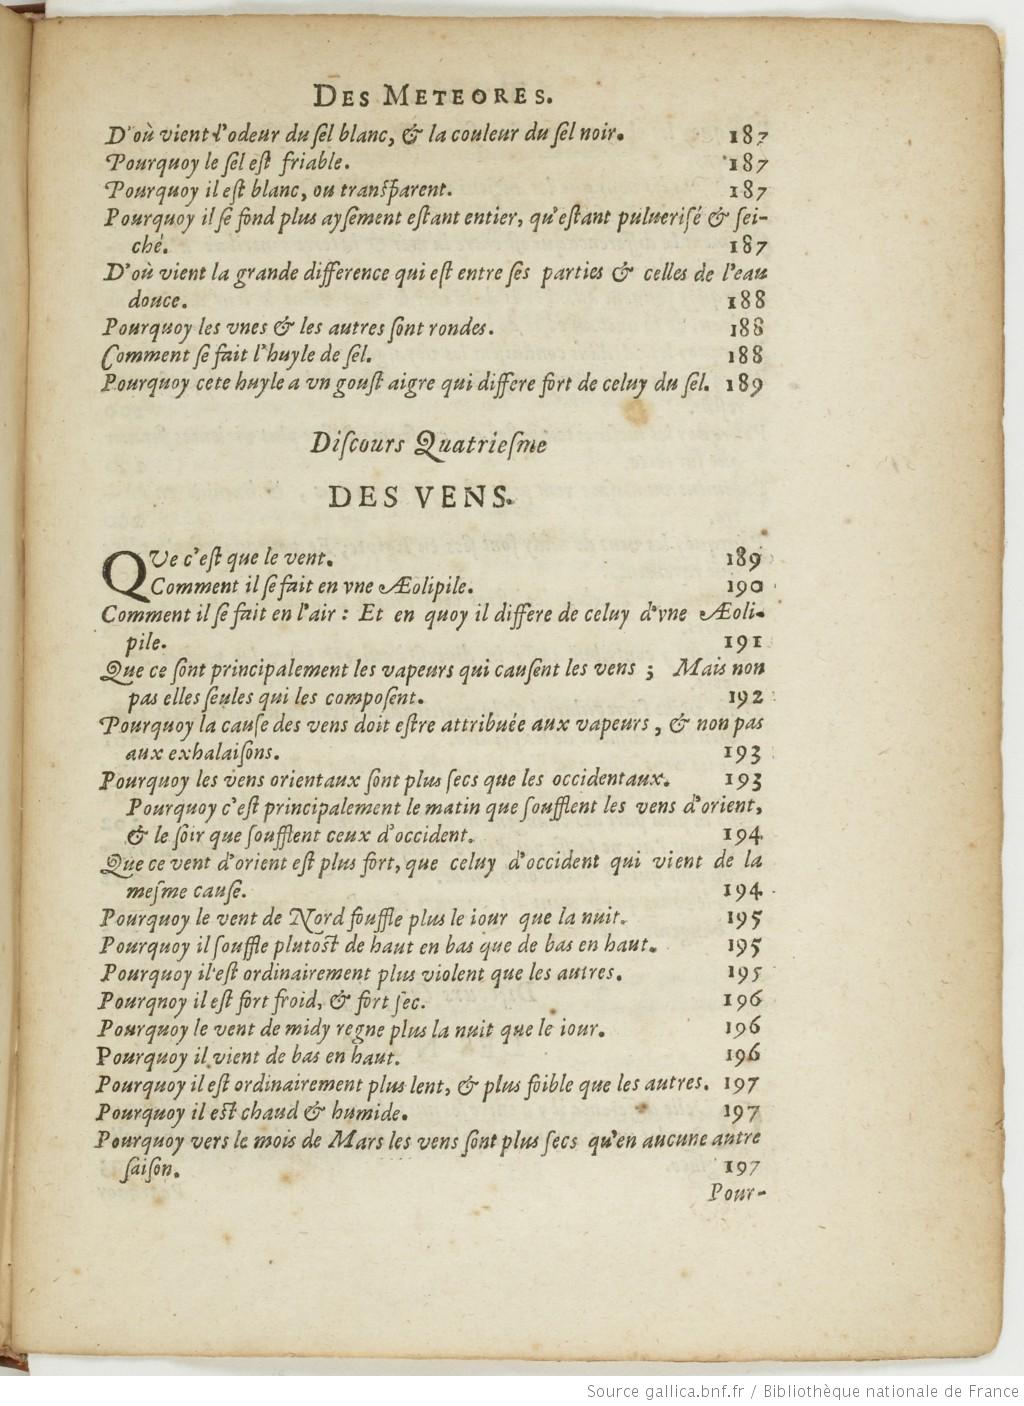 DES METEORES.
D'où vient l'odeur du ſel blanc, & la couleur du ſel noir. 187
Pourquoy le ſel eſt friable. 187
Pourquoy il eſt blanc, ou tranſparent. 187
Pourquoy il ſe fond plus ayſement eſtant entier, qu'eſtant puluerisé & ſei-
ché. 187
D'où vient la grande difference qui eſt entre ſes parties & celles de l'eau
douce. 188
Pourquoy les vnes & les autres ſont rondes. 188
Comment ſe fait l'huyle de ſel. 188
Pourquoy cete huyle a vn gouſt aigre qui differe fort de celuy du ſel. 189
Diſcours Quatrieſme
DES VENS.
QVe c'eſt que le vent. 189
Comment il ſe fait en vne Æolipile. 190
Comment il ſe fait en l'air : Et en quoy il differe de celuy d'vne Æoli-
pile. 191
Que ce ſont principalement les vapeurs qui cauſent les vens ; Mais non
pas elles ſeules qui les compoſent. 192
Pourquoy la cauſe des vens doit eſtre attribuée aux vapeurs, & non pas
aux exhalaiſons. 193
Pourquoy les vens orientaux ſont plus ſecs que les occidentaux. 193
Pourquoy c'eſt principalement le matin que ſoufflent les vens d'orient,
& le ſoir que ſoufflent ceux d'occident. 194
Que ce vent d'orient eſt plus fort, que celuy d'occident qui vient de la
meſme cauſe. 194
Pourquoy le vent de Nord ſouffle plus le iour que la nuit. 195
Pourquoy il ſouffle plutoſt de haut en bas que de bas en haut. 195
Pourquoy il eſt ordinairement plus violent que les autres. 195
Pourqnoy il eſt fort froid, & fort ſec. 196
Pourquoy le vent de midy regne plus la nuit que le iour. 196
Pourquoy il vient de bas en haut. 196
Pourquoy il eſt ordinairement plus lent, & plus foible que les autres. 197
Pourquoy il eſt chaud & humide. 197
Pourquoy vers le mois de Mars les vens ſont plus ſecs qu'en aucune autre
ſaiſon. 197
Pour-
Source gallica.bnf.fr / Bibliothèque nationale de France